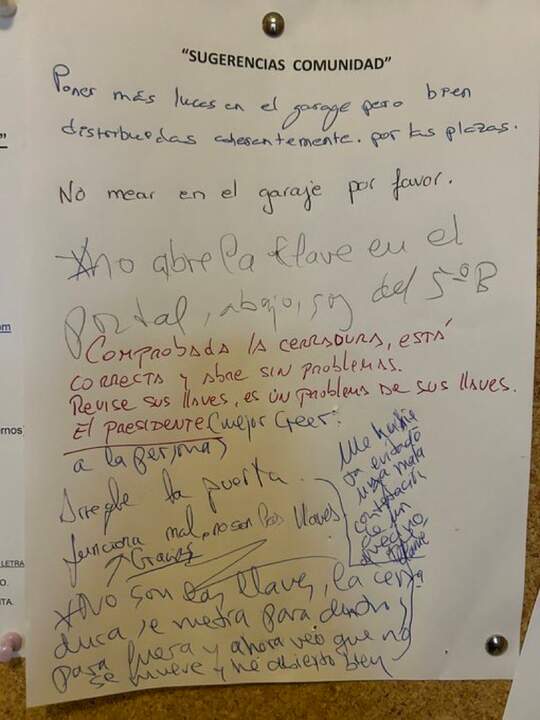 "SUGERENCIAS COMUNIDAD"
Poner más luces en el garage pero bien
distribuedas coherentemente. por las plazas.
No mear en el garaje por favor.
*no abre la llave en el
portal, abajo, soy del 5ºB
Comprobada la cerradura, está
correcta y abre sin problemas.
Revise sus llaves, es un problema de sus llaves.
El presidente
(mejor creer:
a la persona)
Arregle la puerta.
funciona mal, no son las llaves
Gracias
Me hubiera
evitado
una mala
contestación
de un
vecino,
*No son las llaves, la cerra
dura, se metra para dentro,
para fuera y ahora veo que no
se mueve y he abierto bien
om
rnos
LETRA
O.
NTA.